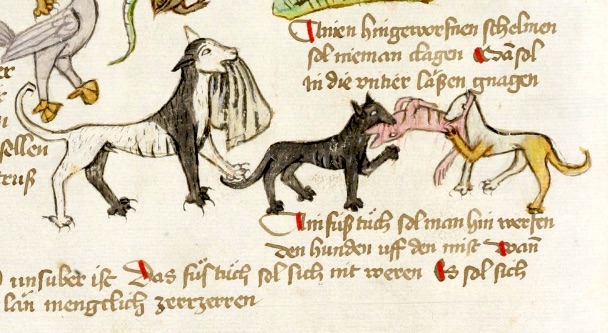 Ainen hingeworfnen schelmen
sol nieman clagen Man sol
in die untier laßen gnagen
er
sellen
Ain füß tuch sol man hin werfen
den hunden uff den mist Wan
unsuber ist Das füs tuch sol sich nit weren Es sol sich
lan mengklich zerrzerren